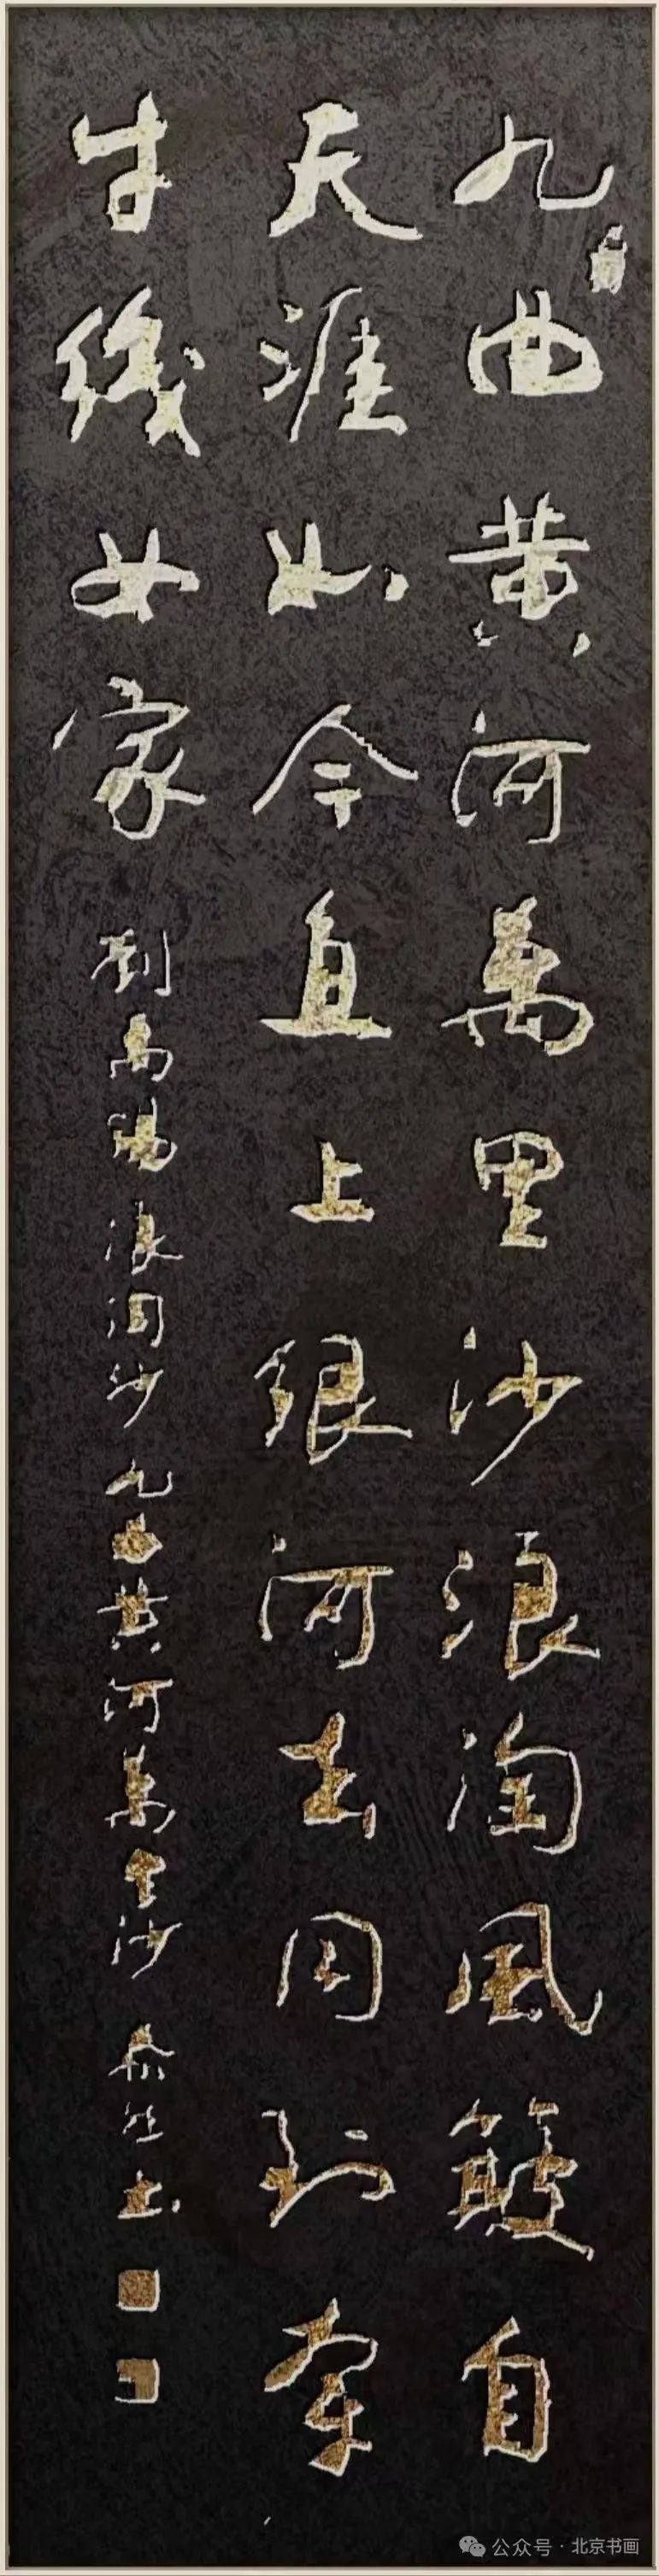 九曲黄河萬里沙浪淘風簸自
天涯如今直上銀河去同到牽
牛織女家
劉禹錫浪淘沙九曲黄河萬里沙 书
公众号 · 北京书画